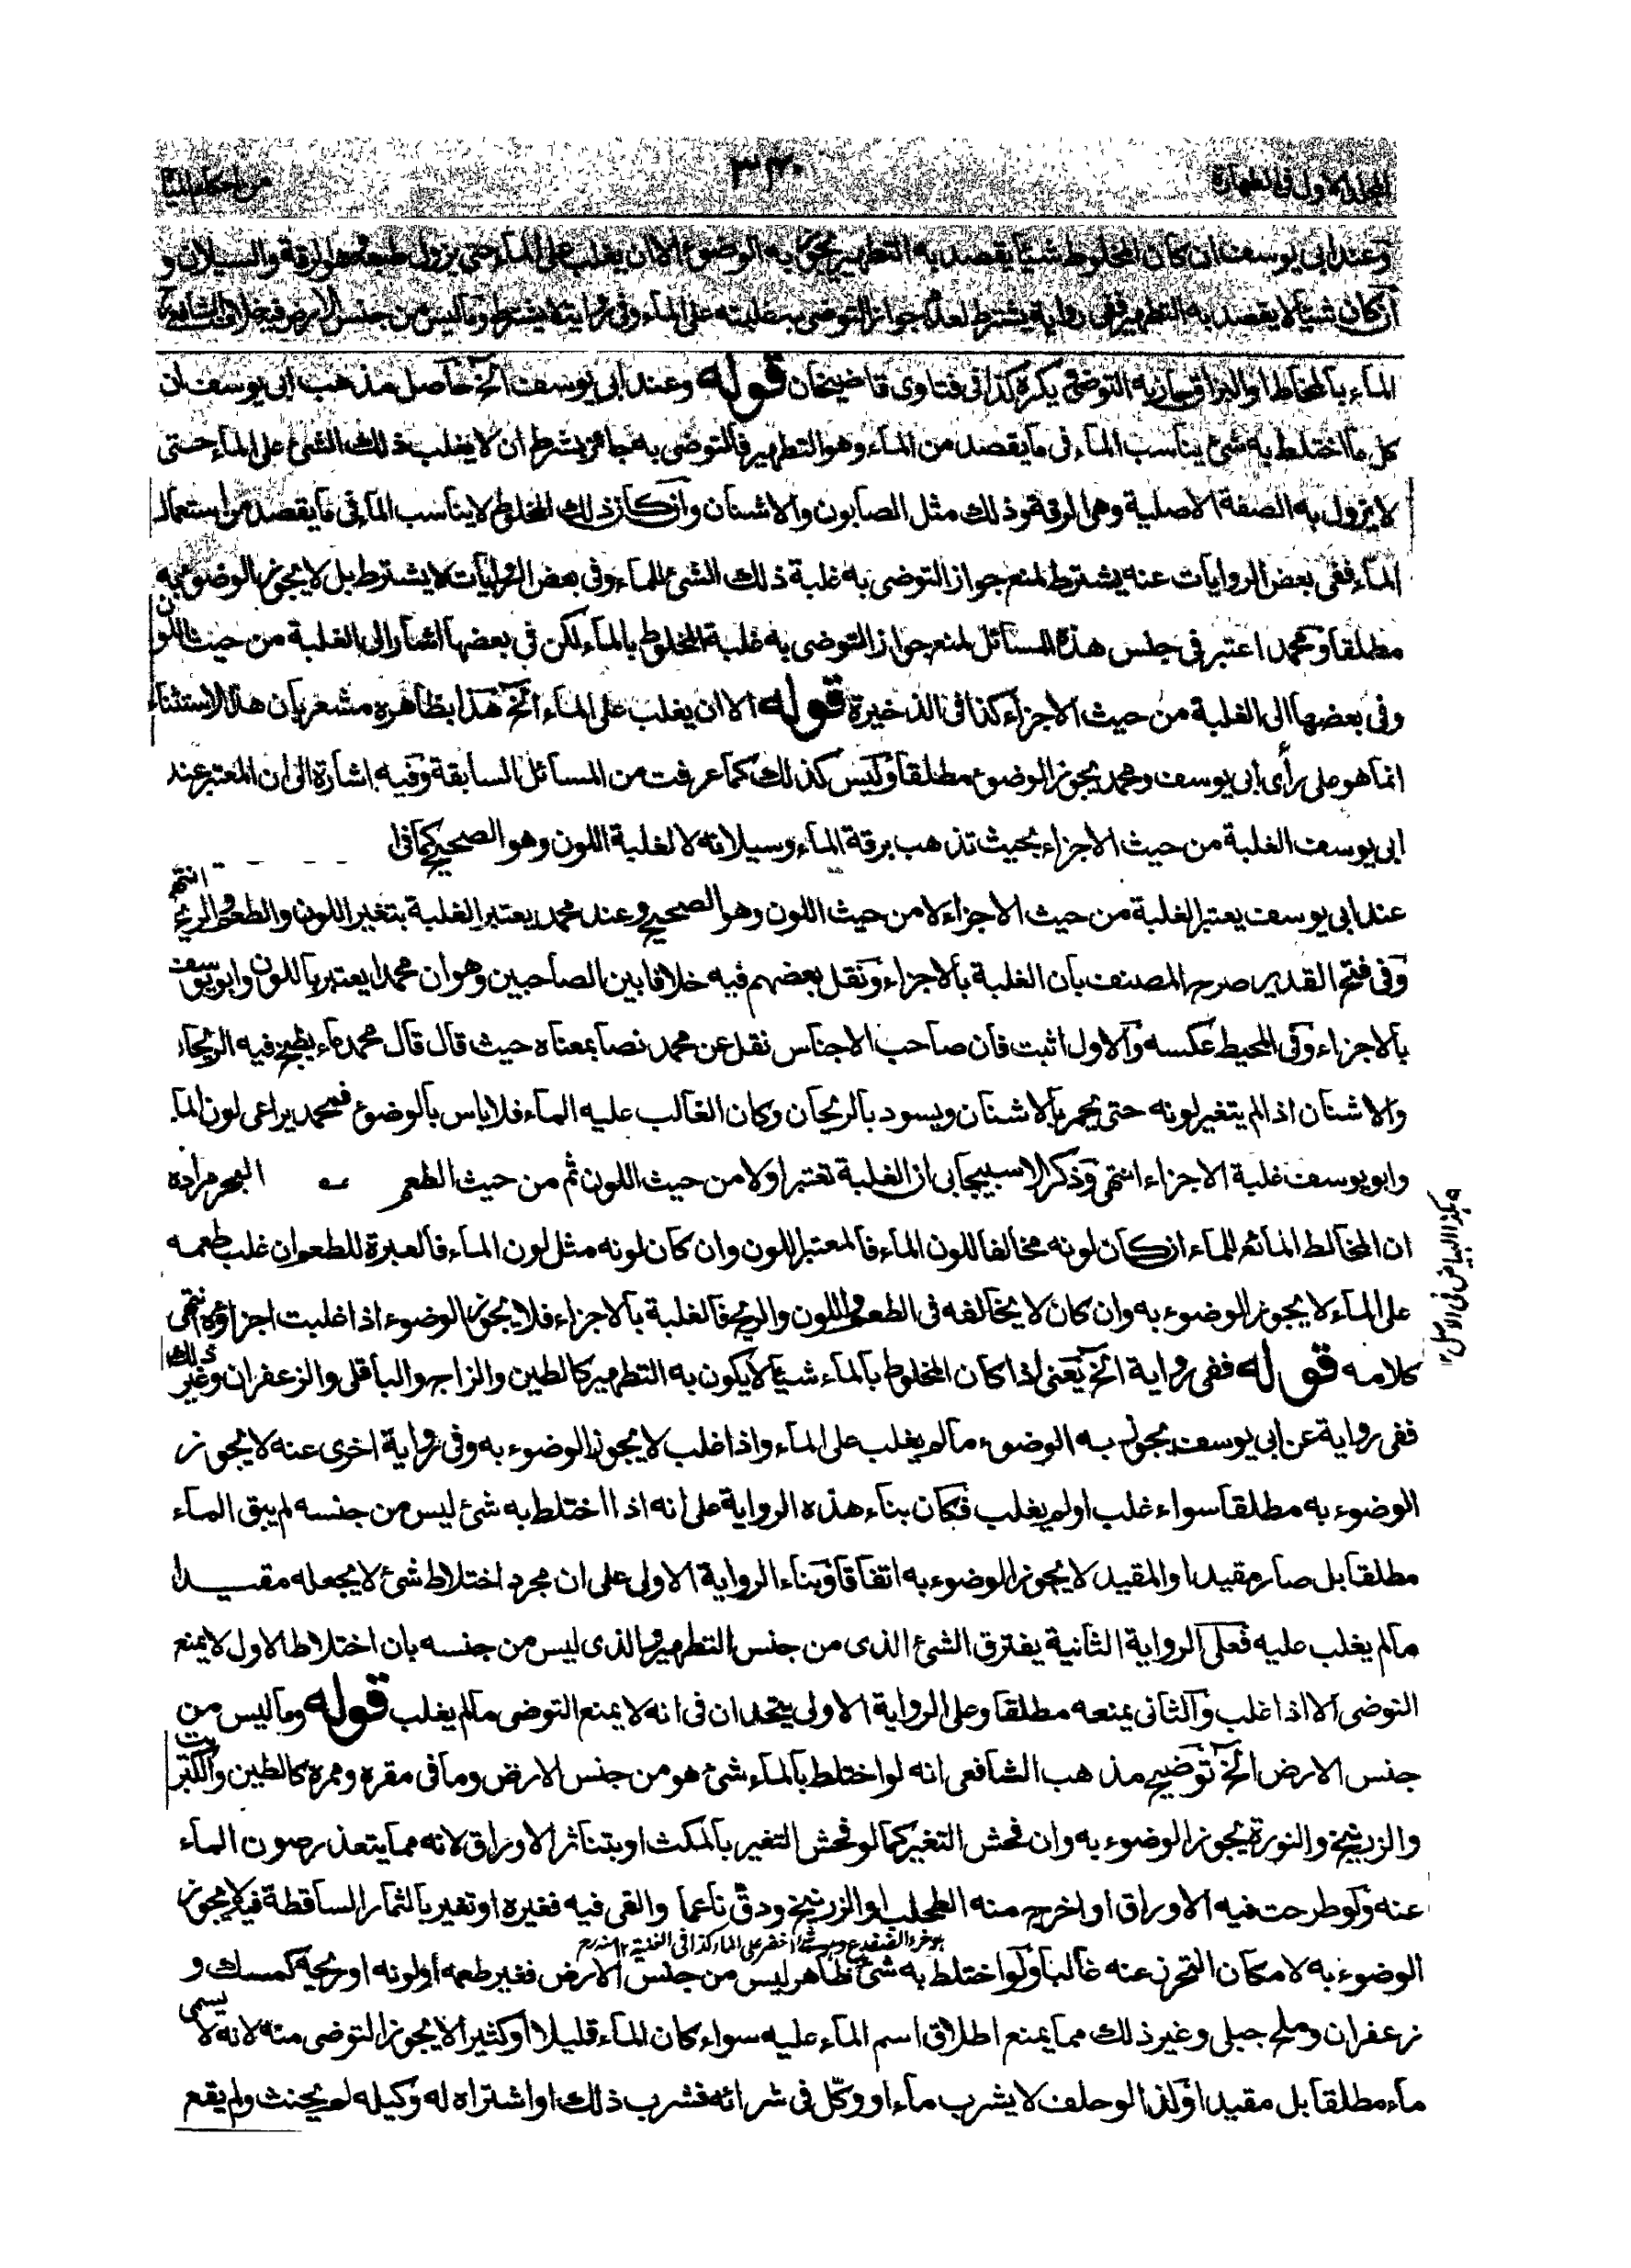 المجلد الاول فى الطهارة
٣٤٠
من احكام المياه
وعند ابى يوسف ان كان المخلوط شيئا يقصد به التطهير يجوز به الوضوء الا ان يغلب على الماء حتى يزول طبعه وهو الرقة والسيلان و
ان كان شيئا لا يقصد به التطهير ففى رواية يشترط لعدم جواز التوضى به غلبته على الماء وفى رواية لا يشترط وماليس من جنس الارض فيه خلاف الشافعى
الماء بالمخاط او البزاق جاز به التوضى ويكره كذا فى فتاوى قاضيخان قوله وعند ابى يوسف الخ حاصل مذهب ابى يوسف ان
كل ما اختلط به شئ يناسب الماء فى ما يقصد من الماء وهو التطهير فالتوضى به جائز بشرط ان لا يغلب ذلك الشئ على الماء حتى
لا يزول به الصفة الاصلية وهى الرقة وذلك مثل الصابون والاشنان وان كان ذلك المخلوط لا يناسب الماء فى ما يقصد من استعمال
الماء ففى بعض الروايات عنه يشترط لمنع جواز التوضى به غلبة ذلك الشئ للماء وفى بعض الروايات لا يشترط بل لا يجوز الوضوء به
مطلقا ومحمد اعتبر فى جنس هذه المسائل لمنع جواز التوضى به غلبة المخلوط بالماء لكن فى بعضها اشار الى الغلبة من حيث اللون
وفى بعضها الى الغلبة من حيث الاجزاء كذا فى الذخيرة قوله الا ان يغلب على الماء الخ هذا بظاهره مشعر بان هذا الاستثناء
انما هو على رأى ابى يوسف ومحمد يجوز الوضوء مطلقا وليس كذلك كما عرفت من المسائل السابقة وفيه اشارة الى ان المعتبر عند
ابى يوسف الغلبة من حيث الاجزاء بحيث تذهب برقة الماء وسيلانه لا لغلبة اللون وهو الصحيح كما فى
عند ابى يوسف يعتبر الغلبة من حيث الاجزاء لا من حيث اللون وهو الصحيح وعند محمد يعتبر الغلبة بتغير اللون والطعم والريح انتهى
وفى فتح القدير صرح المصنف بان الغلبة بالاجزاء ونقل بعضهم فيه خلافا بين الصاحبين وهو ان محمدا يعتبر باللون وابو يوسف
بالاجزاء وفى المحيط عكسه والاول اثبت فان صاحب الاجناس نقل عن محمد نصا بمعناه حيث قال قال محمد ماء يطبخ فيه الريحان
والاشنان اذا لم يتغير لونه حتى يحمر بالاشنان ويسود بالريحان وكان الغالب عليه الماء فلا باس بالوضوء فمحمد يراعى لون الماء
وابو يوسف غلبة الاجزاء انتهى وذكر الاسبيجابى ان الغلبة تعتبر اولا من حيث اللون ثم من حيث الطعم البحر مراده
ان المخالط المائع للماء ان كان لونه مخالفا للون الماء فالمعتبر اللون وان كان لونه مثل لون الماء فالعبرة للطعم وان غلب طعمه
على الماء لا يجوز الوضوء به وان كان لا يخالفه فى الطعم واللون والريح فالغلبة بالاجزاء فلا يجوز الوضوء اذا غلبت اجزاؤه انتهى
كلامه قوله ففى رواية الخ يعنى اذا كان المخلوط بالماء شيئا لا يكون به التطهير كالطين والزاج والباقلى والزعفران وغير ذلك
ففى رواية عن ابى يوسف يجوز به الوضوء مالم يغلب على الماء واذا غلب لا يجوز الوضوء به وفى رواية اخرى عنه لا يجوز
الوضوء به مطلقا سواء غلب او لم يغلب فكان بناء هذه الرواية على انه اذا اختلط به شئ ليس من جنسه لم يبق الماء
مطلقا بل صار مقيدا والمقيد لا يجوز الوضوء به اتفاقا وبناء الرواية الاولى على ان مجرد اختلاط شئ لا يجعله مقيدا
مالم يغلب عليه فعلى الرواية الثانية يفترق الشئ الذى من جنس التطهير والذى ليس من جنسه بان اختلاط الاول لا يمنع
التوضى الا اذا غلب والثانى يمنعه مطلقا وعلى الرواية الاولى يتحدان فى انه لا يمنع التوضى مالم يغلب قوله وماليس من
جنس الارض الخ توضيح مذهب الشافعى انه لو اختلط بالماء شئ هو من جنس الارض وما فى مقره وممره كالطين والكبريت
والزرنيخ والنورة يجوز الوضوء به وان فحش التغير كما لو فحش التغير بالمكث او بتناثر الاوراق لانه مما يتعذر صون الماء
عنه ولو طرحت فيه الاوراق او اخرج منه الطحلب او الزرنيخ ودق ناعما والقى فيه فغيره او تغير بالثمار الساقطة فيه لا يجوز
هو خرء الضفدع وهو شئ اخضر على الماء كذا فى الغنية ١٢ منه
الوضوء به لامكان التحرز عنه غالبا ولو اختلط به شئ ظاهر ليس من جنس الارض فغير طعمه او لونه او ريحه كمسك و
زعفران وملح جبلى وغير ذلك مما يمنع اطلاق اسم الماء عليه سواء كان الماء قليلا او كثيرا لا يجوز التوضى منه لانه لا يسمى
ماء مطلقا بل مقيدا ولذا لو حلف لا يشرب ماء او وكل فى شرائه فشرب ذلك او اشتراه له وكيله لم يحنث ولم يقع
هكذا البياض فى الاصل ١٢